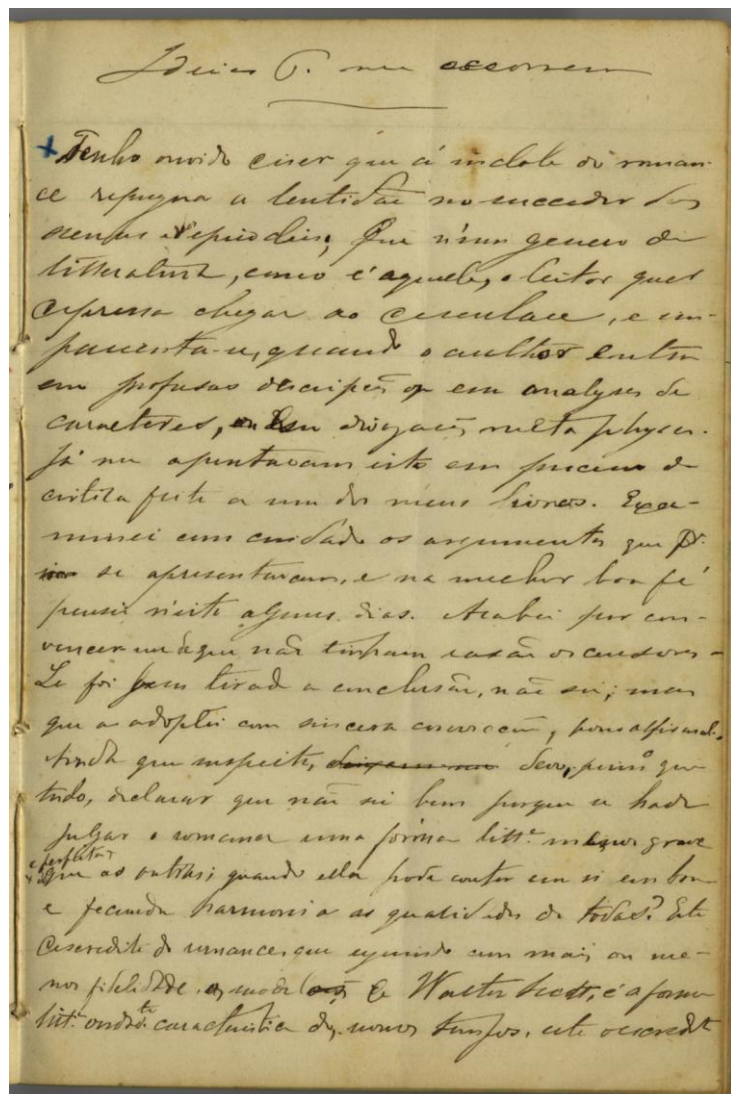 Ideias q. me occorrem
Tenho ouvido dizer que á indole do roman-
ce repugna a lentidão no succeder das
scenas e episodios; que n'um genero de
litteratura, como é aquelle, o leitor quer
depressa chegar ao desenlace, e im-
pacienta-se, quando o author entra
em profusas descripções ou em analyses de
caracteres, ou em divagações metaphysicas.
Já me apontavam isto em
critica feita a um dos meus livros. Exa-
minei com cuidado os argumentos que
se apresentavam, e na melhor boa fé
pensei n'isto alguns dias. Acabei por con-
vencer-me de que não tinham razão os censores.
Se foi bem tirada a conclusão, não sei; mas
que a adoptei com sincera convicção, posso affirmal-o.
Ainda que suspeito, devo, primº que
tudo, declarar que não sei bem porque se hade
julgar o romance uma fórma littª menos grave
e perfeita
que as outras; quando ella pode conter em si em boa
e fecunda harmonia as qualidades de todas? Este
descredito do romance, que seguindo com mais ou me-
nos fidelidade os modelos de Walter Scott, é a forma
litt.ª caracteristica dos novos tempos, este descredito